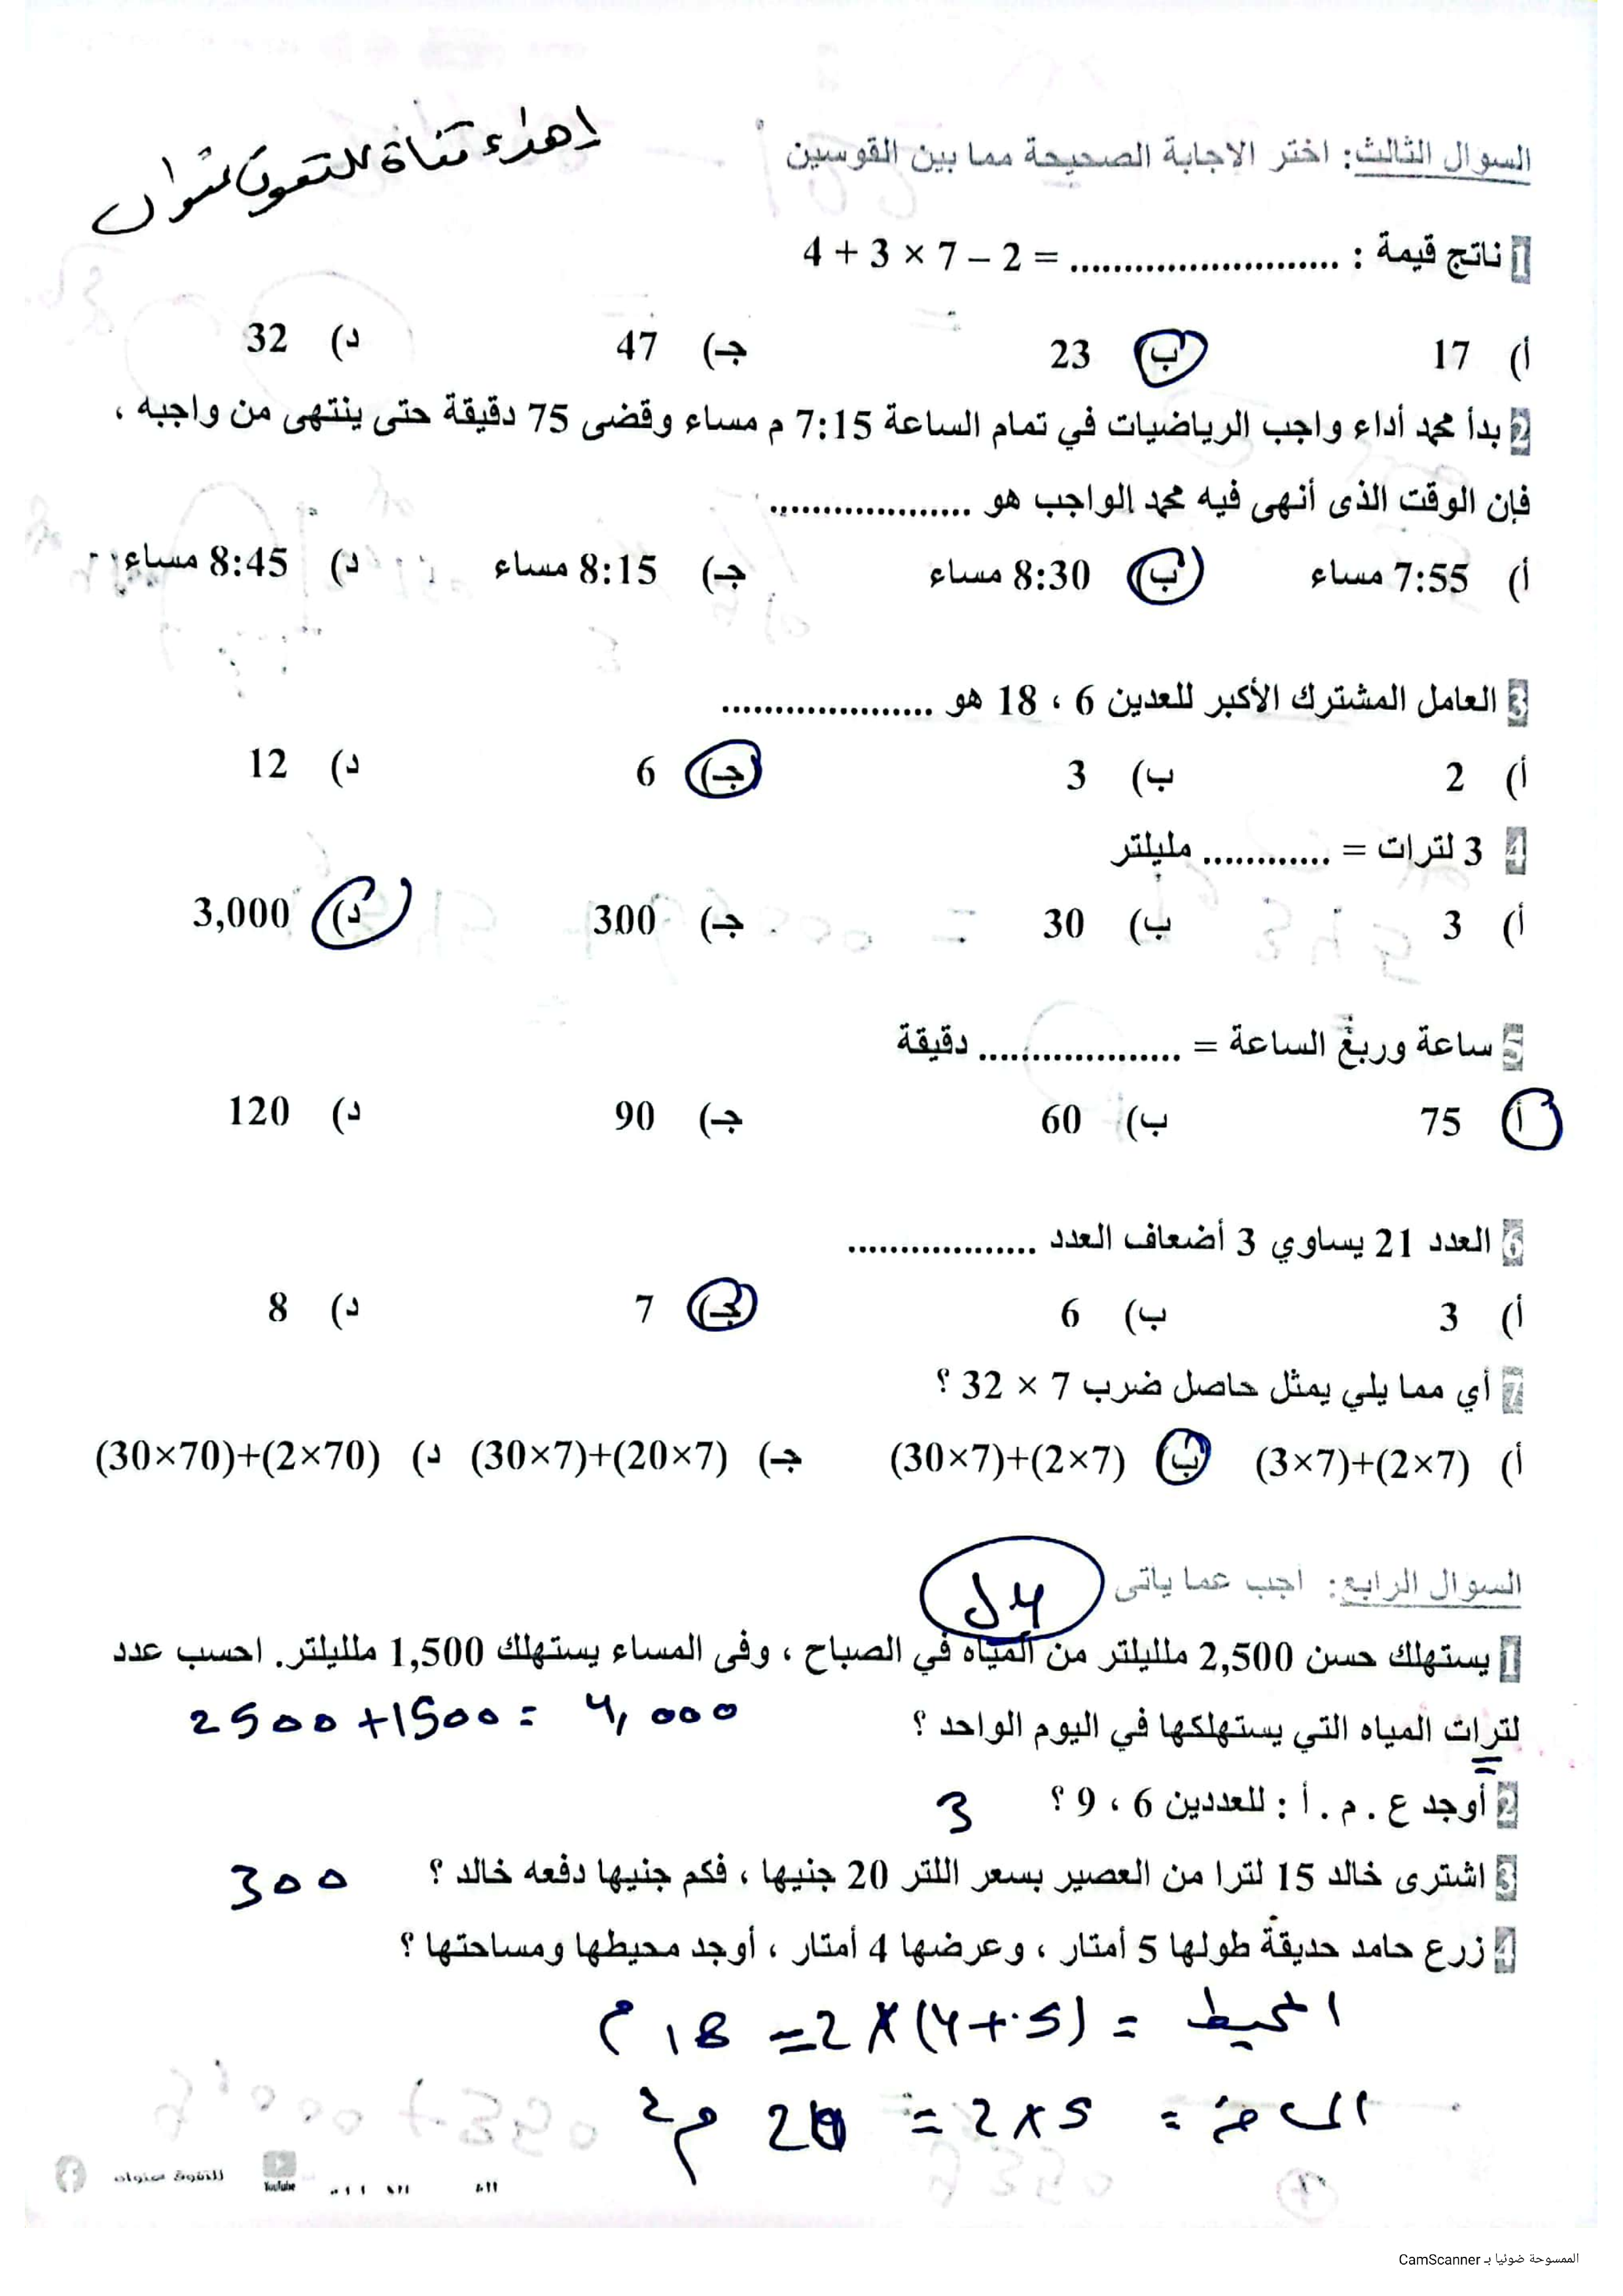 اهداء قناة للتفوق عنوان
السؤال الثالث: اختر الاجابة الصحيحة مما بين القوسين
1 ناتج قيمة : ......................... = 4 + 3 × 7 – 2
أ) 17 ب) 23 جـ) 47 د) 32
2 بدأ محمد أداء واجب الرياضيات في تمام الساعة 7:15 م مساء وقضى 75 دقيقة حتى ينتهى من واجبه ،
فإن الوقت الذى أنهى فيه محمد الواجب هو ...................
أ) 7:55 مساء ب) 8:30 مساء جـ) 8:15 مساء د) 8:45 مساء
3 العامل المشترك الأكبر للعدين 6 ، 18 هو ....................
أ) 2 ب) 3 جـ) 6 د) 12
4 3 لترات = ............ مليلتر
أ) 3 ب) 30 جـ) 300 د) 3,000
5 ساعة وربع الساعة = ................... دقيقة
أ) 75 ب) 60 جـ) 90 د) 120
6 العدد 21 يساوي 3 أضعاف العدد ..................
أ) 3 ب) 6 جـ) 7 د) 8
7 أي مما يلي يمثل حاصل ضرب 7 × 32 ؟
أ) (3×7)+(2×7) ب) (30×7)+(2×7) جـ) (30×7)+(20×7) د) (30×70)+(2×70)
السؤال الرابع: اجب عما ياتى
4 ل
1 يستهلك حسن 2,500 ملليلتر من المياه في الصباح ، وفى المساء يستهلك 1,500 ملليلتر. احسب عدد
لترات المياه التي يستهلكها في اليوم الواحد ؟ 2500+1500= 4,000
2 أوجد ع . م . أ : للعددين 6 ، 9 ؟ 3
3 اشترى خالد 15 لترا من العصير بسعر اللتر 20 جنيها ، فكم جنيها دفعه خالد ؟ 300
4 زرع حامد حديقة طولها 5 أمتار ، وعرضها 4 أمتار ، أوجد محيطها ومساحتها ؟
المحيط = (5+4)×2= 18 م
المساحة = 5×2 = 20 م2
للتفوق عنوان YouTube
الممسوحة ضوئيا بـ CamScanner